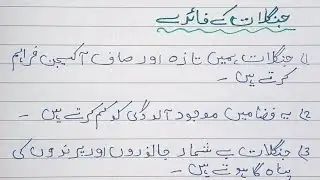 جنگلات کے فائدے
1) جنگلات ہمیں تازہ اور صاف آکسیجن فراہم
کرتے ہیں ۔
2) یہ فضا میں موجود آلودگی کو کم کرتے ہیں ۔
3) جنگلات بے شمار جانوروں اور پرندوں کی
پناہ گاہ ہوتے ہیں ۔